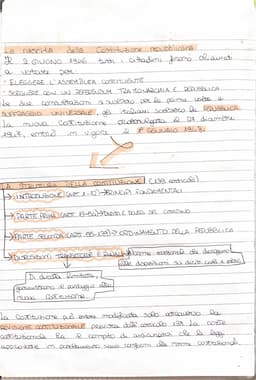 La nascita della Costituzione repubblicana
Il 2 GIUGNO 1946 tutti i cittadini furono chiamati
a votare per:
· ELEGGERE L'ASSEMBLEA COSTITUENTE
· SCEGLIERE CON UN REFERENDUM TRA MONARCHIA E REPUBBLICA
Le due consultazioni si svolsero per la prima volta a
SUFFRAGIO UNIVERSALE, gli italiani scelsero la REPUBBLICA
La nuova Costituzione promulgata il 27 dicembre
1947, entrò in vigore il 1° GENNAIO 1948.
LA STRUTTURA DELLA COSTITUZIONE (139 articoli)
INTRODUZIONE (ART 1-12) PRINCIPI FONDAMENTALI
PARTE PRIMA (ART 13-54) DIRITTI E DOVERI DEL CITTADINO
PARTE SECONDA (ART 55-139) ORDINAMENTO DELLA REPUBBLICA
DISPOSIZIONI TRANSITORIE E FINALI
Di durata limitata,
garantirono il passaggio alla
nuova Costituzione.
La Costituzione può essere modificata solo attraverso la
REVISIONE COSTITUZIONALE prevista dall'articolo 138. La corte
costituzionale ha il compito di assicurarsi che le leggi
approvate in parlamento siano conformi alle norme costituzionali.